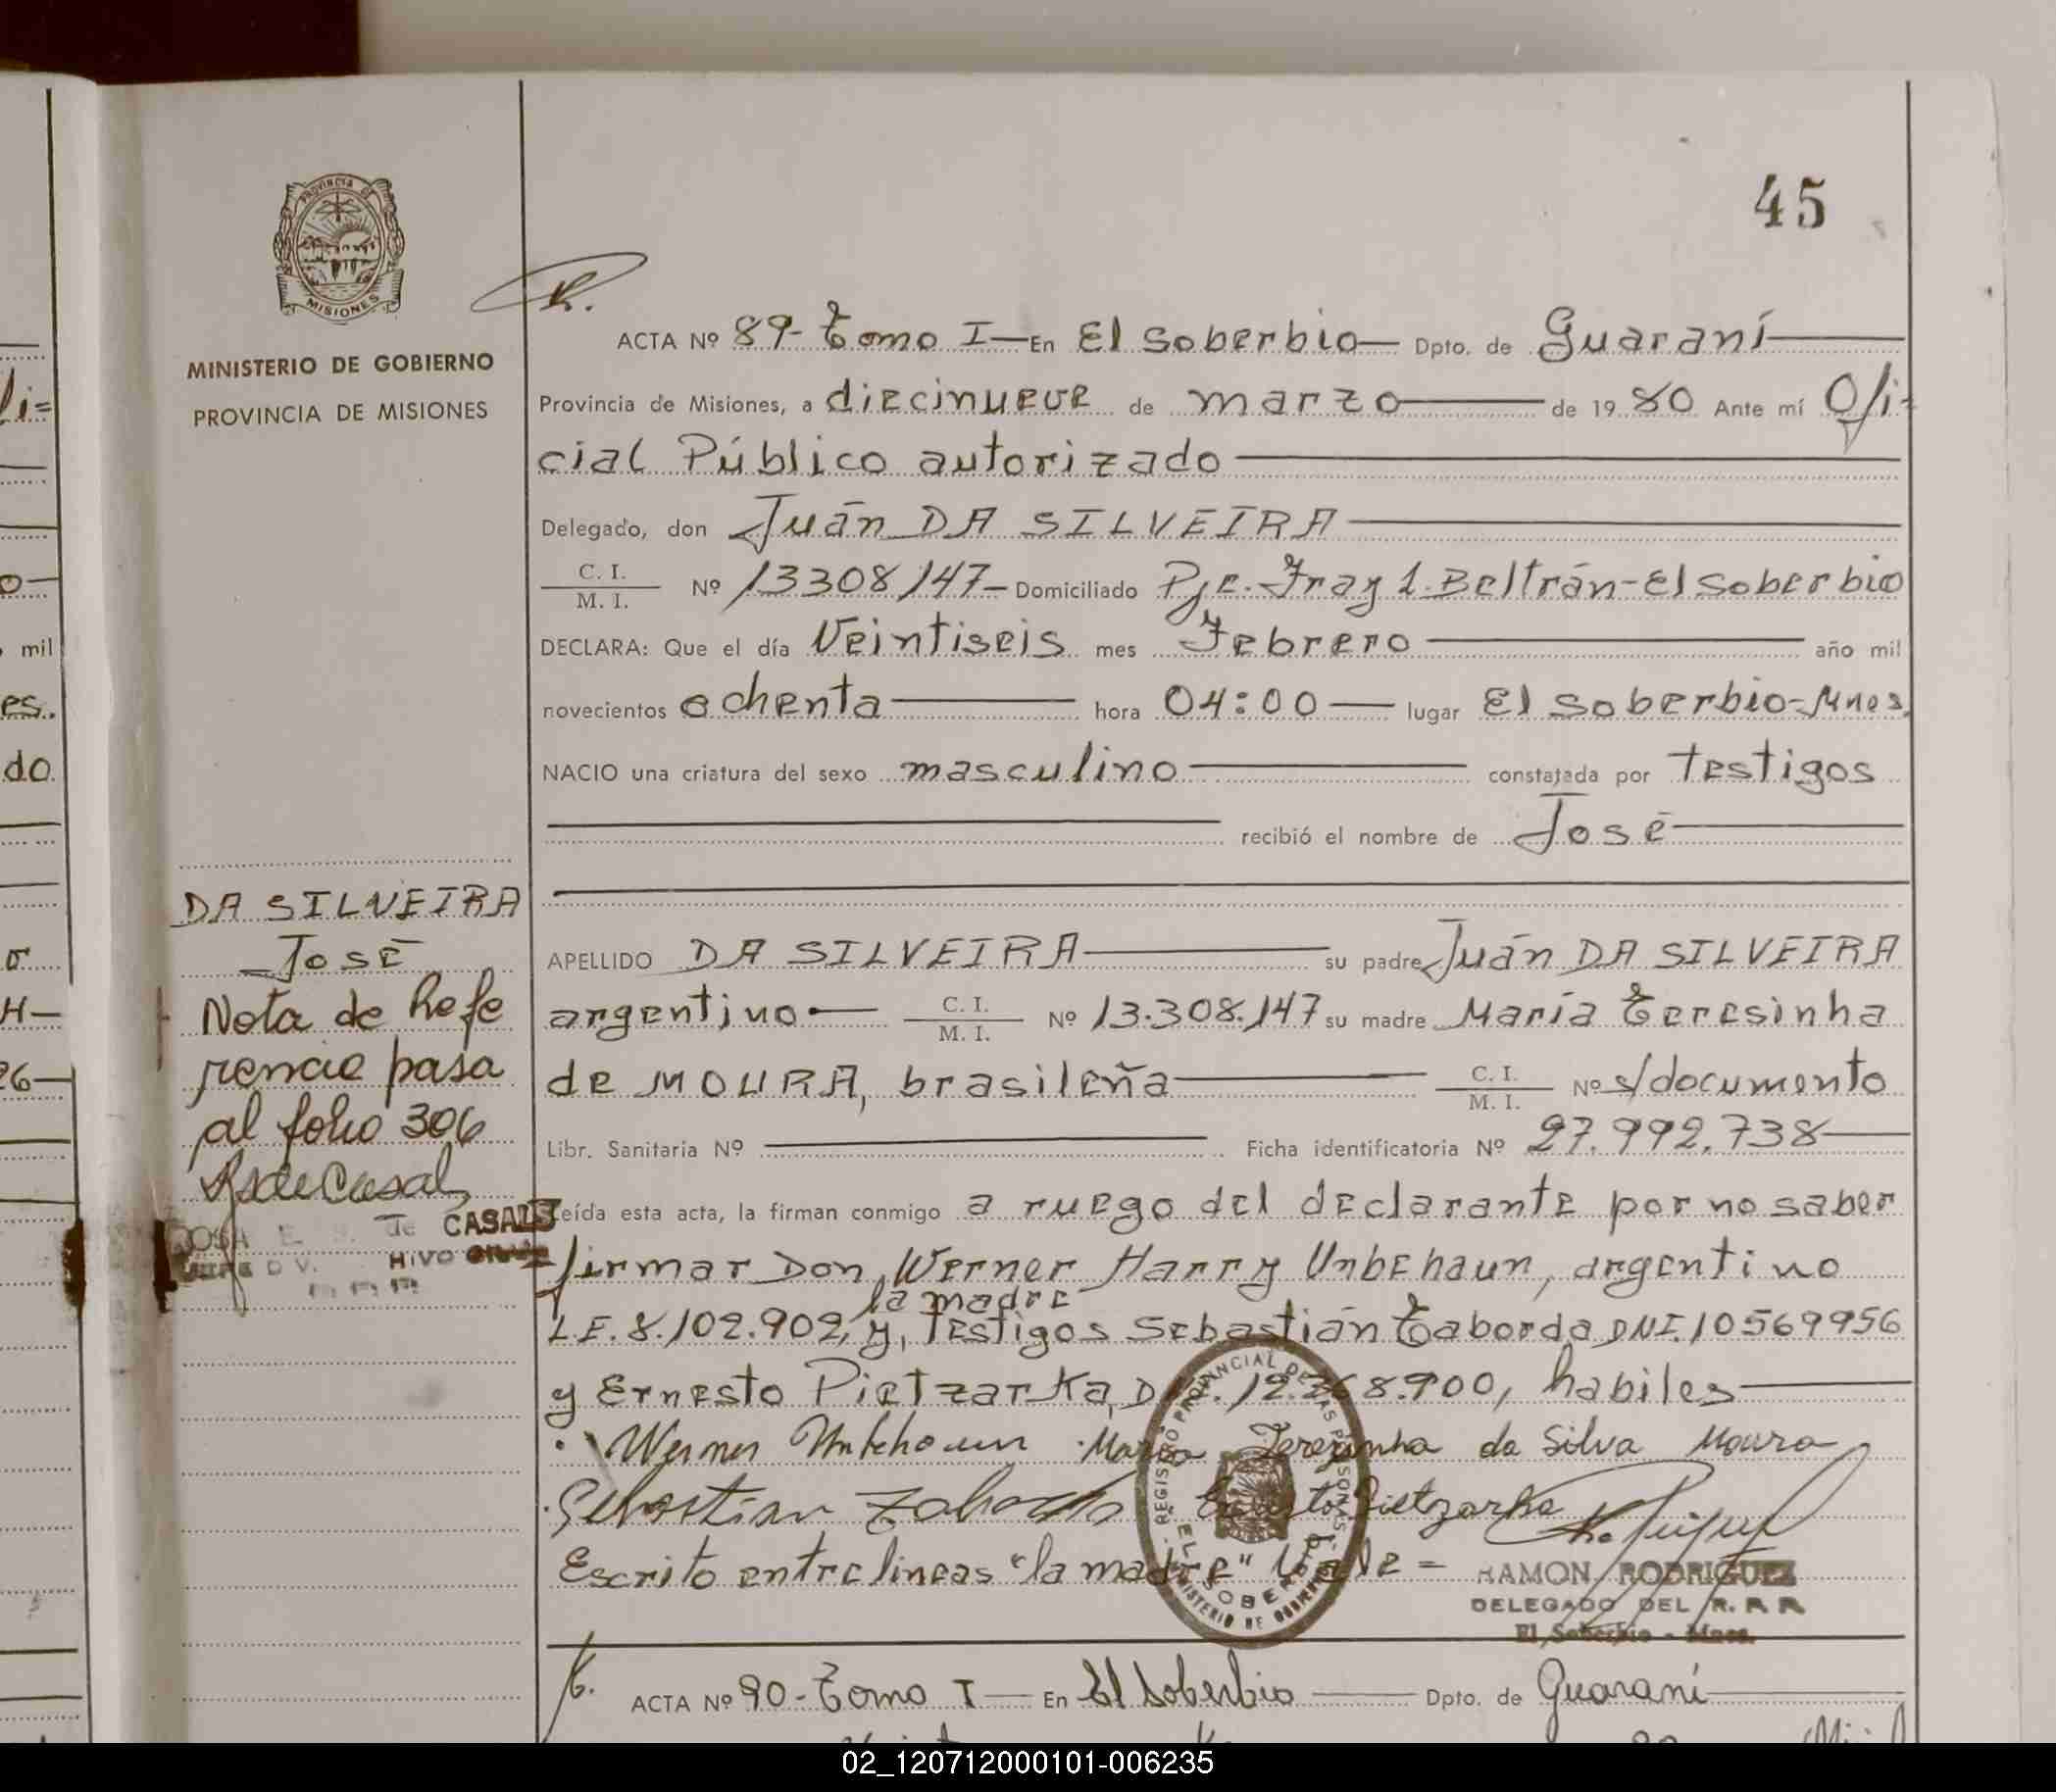 45
PROVINCIA DE
MISIONES
MINISTERIO DE GOBIERNO
PROVINCIA DE MISIONES
ACTA Nº 89- Tomo I — En El Soberbio — Dpto. de Guaraní
Provincia de Misiones, a diecinueve de marzo de 1980 Ante mí Ofi-
cial Público autorizado
Delegado, don Juán DA SILVEIRA
C. I.
M. I. Nº 13308147- Domiciliado Pje. Fray L. Beltrán- El Soberbio
DECLARA: Que el día Veintiseis mes Febrero año mil
novecientos ochenta hora 04:00 — lugar El Soberbio- Mnes.
NACIO una criatura del sexo masculino constatada por testigos
recibió el nombre de José
APELLIDO DA SILVEIRA su padre Juán DA SILVEIRA
argentino — C. I.
M. I. Nº 13.308.147 su madre María Teresinha
de MOURA, brasileña C. I.
M. I. Nº s/documento
Libr. Sanitaria Nº Ficha identificatoria Nº 27.992.738
Leída esta acta, la firman conmigo a ruego del declarante por no saber
firmar Don Werner Harry Unbehaun, argentino
la madre
L.E. 8.102.902, y, testigos Sebastián Taborda DNI. 10569956
y Ernesto Pietzarka, 900, habiles
Werner Unbehaun Maria Terezinha da Silva Moura
Sebastian Taborda Ernesto Pietzarka
Escrito entre lineas "la madre" Vale =
RAMON RODRIGUEZ
DELEGADO DEL R.
El Soberbio - Mnes.
REGISTRO PROVINCIAL DE LAS PERSONAS
EL SOBERBIO
MINISTERIO DE GOBIERNO
DA SILVEIRA
José
Nota de Refe
rencia pasa
al folio 306
RSdeCasals
ROSA E. S. de CASALS
ACTA Nº 90- Tomo I — En El Soberbio — Dpto. de Guaraní
li=
mil
es.
do.
H-
26-
02_120712000101-006235